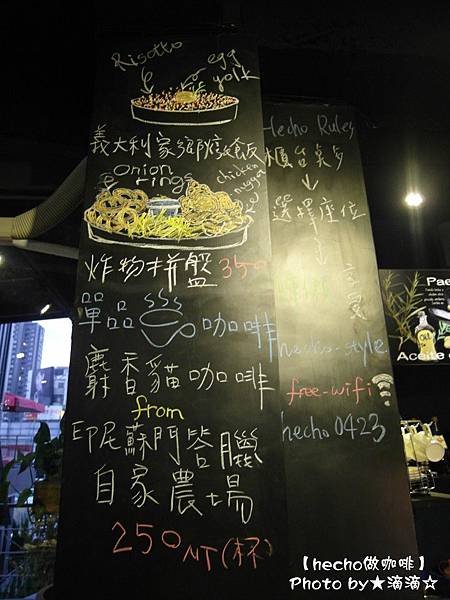 Risotto
egg
yolk
義大利家鄉燉飯
onion
rings
chicken
nugget
炸物拼盤 350
單品 咖啡
麝香貓咖啡
from
印尼蘇門答臘
自家農場
250 NT(杯)
Hecho Rules
櫃台點
↓
選擇座位
↓
hecho-style
free-wifi
hecho0423
Pae
Aceite d
【hecho做咖啡】
Photo by★滴滴☆